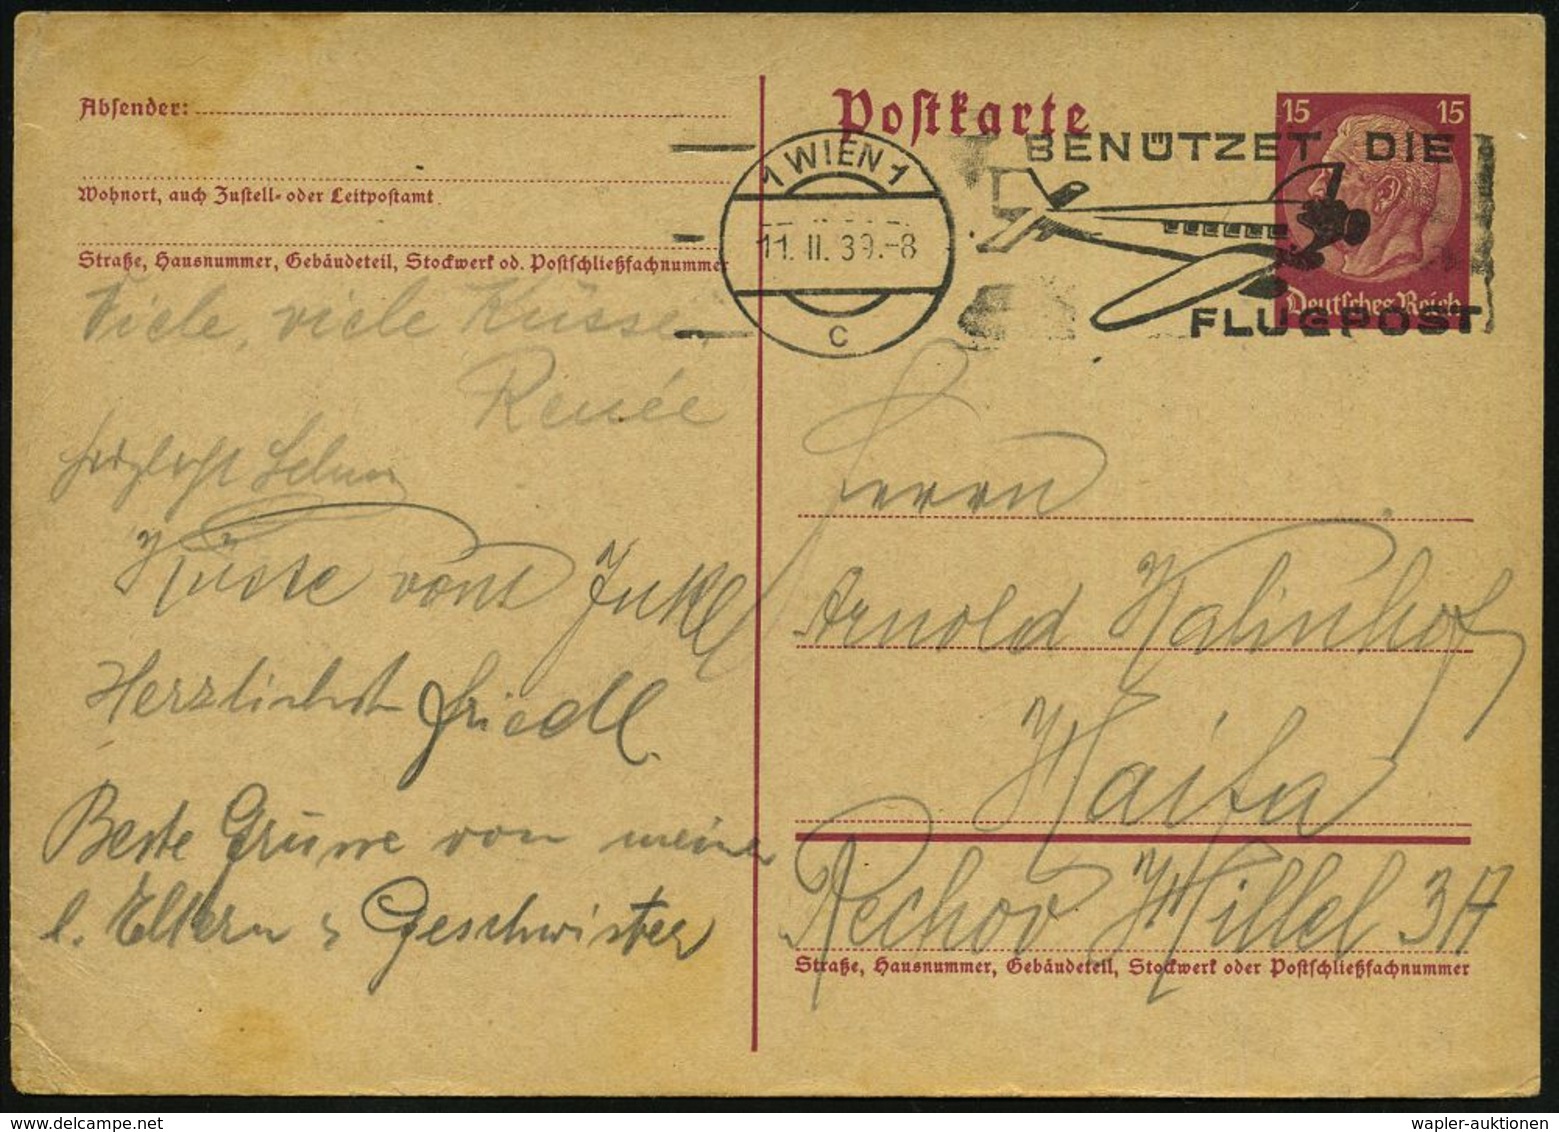 Postkarte
Absender:
Wohnort, auch Zustell- oder Leitpostamt
Straße, Hausnummer, Gebäudeteil, Stockwerk od. Postschließfachnummer
15 15
Deutsches Reich
1 WIEN 1
11. II. 39.-8
c
BENÜTZET DIE
FLUGPOST
Viele, viele Küsse,
Renée
herzlichst
Küsse vom
Herzlichst Friedl.
Beste Grüsse von meinen
l. Eltern & Geschwister
Herrn
Arnold Kalinhof
Haifa
Rechov Hillel 3A
Straße, Hausnummer, Gebäudeteil, Stockwerk oder Postschließfachnummer
wapler-auktionen